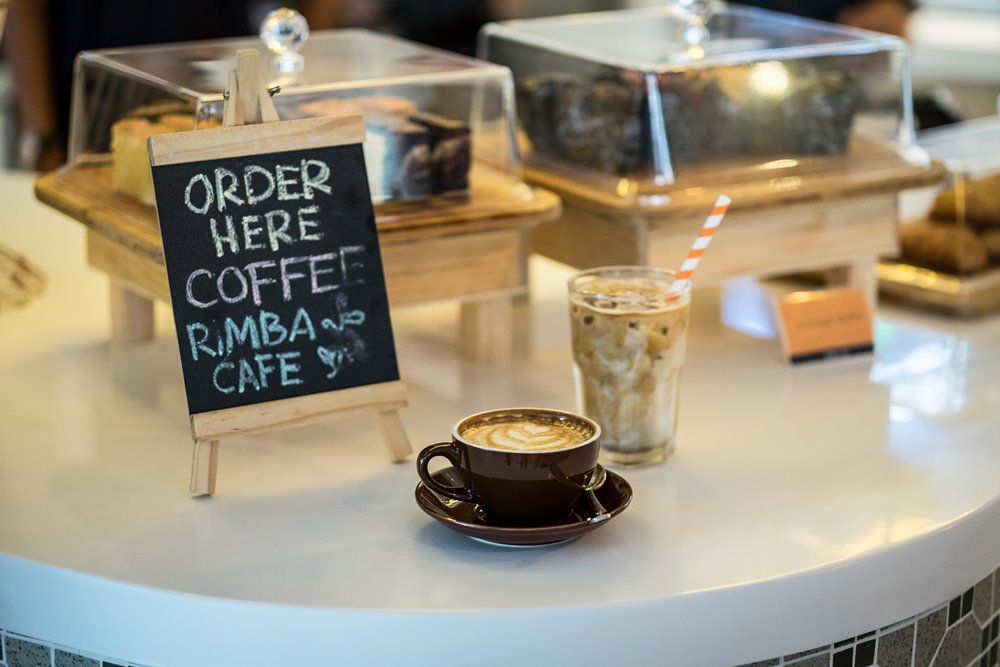 ORDER
HERE
COFFEE
RiMBA
CAFE